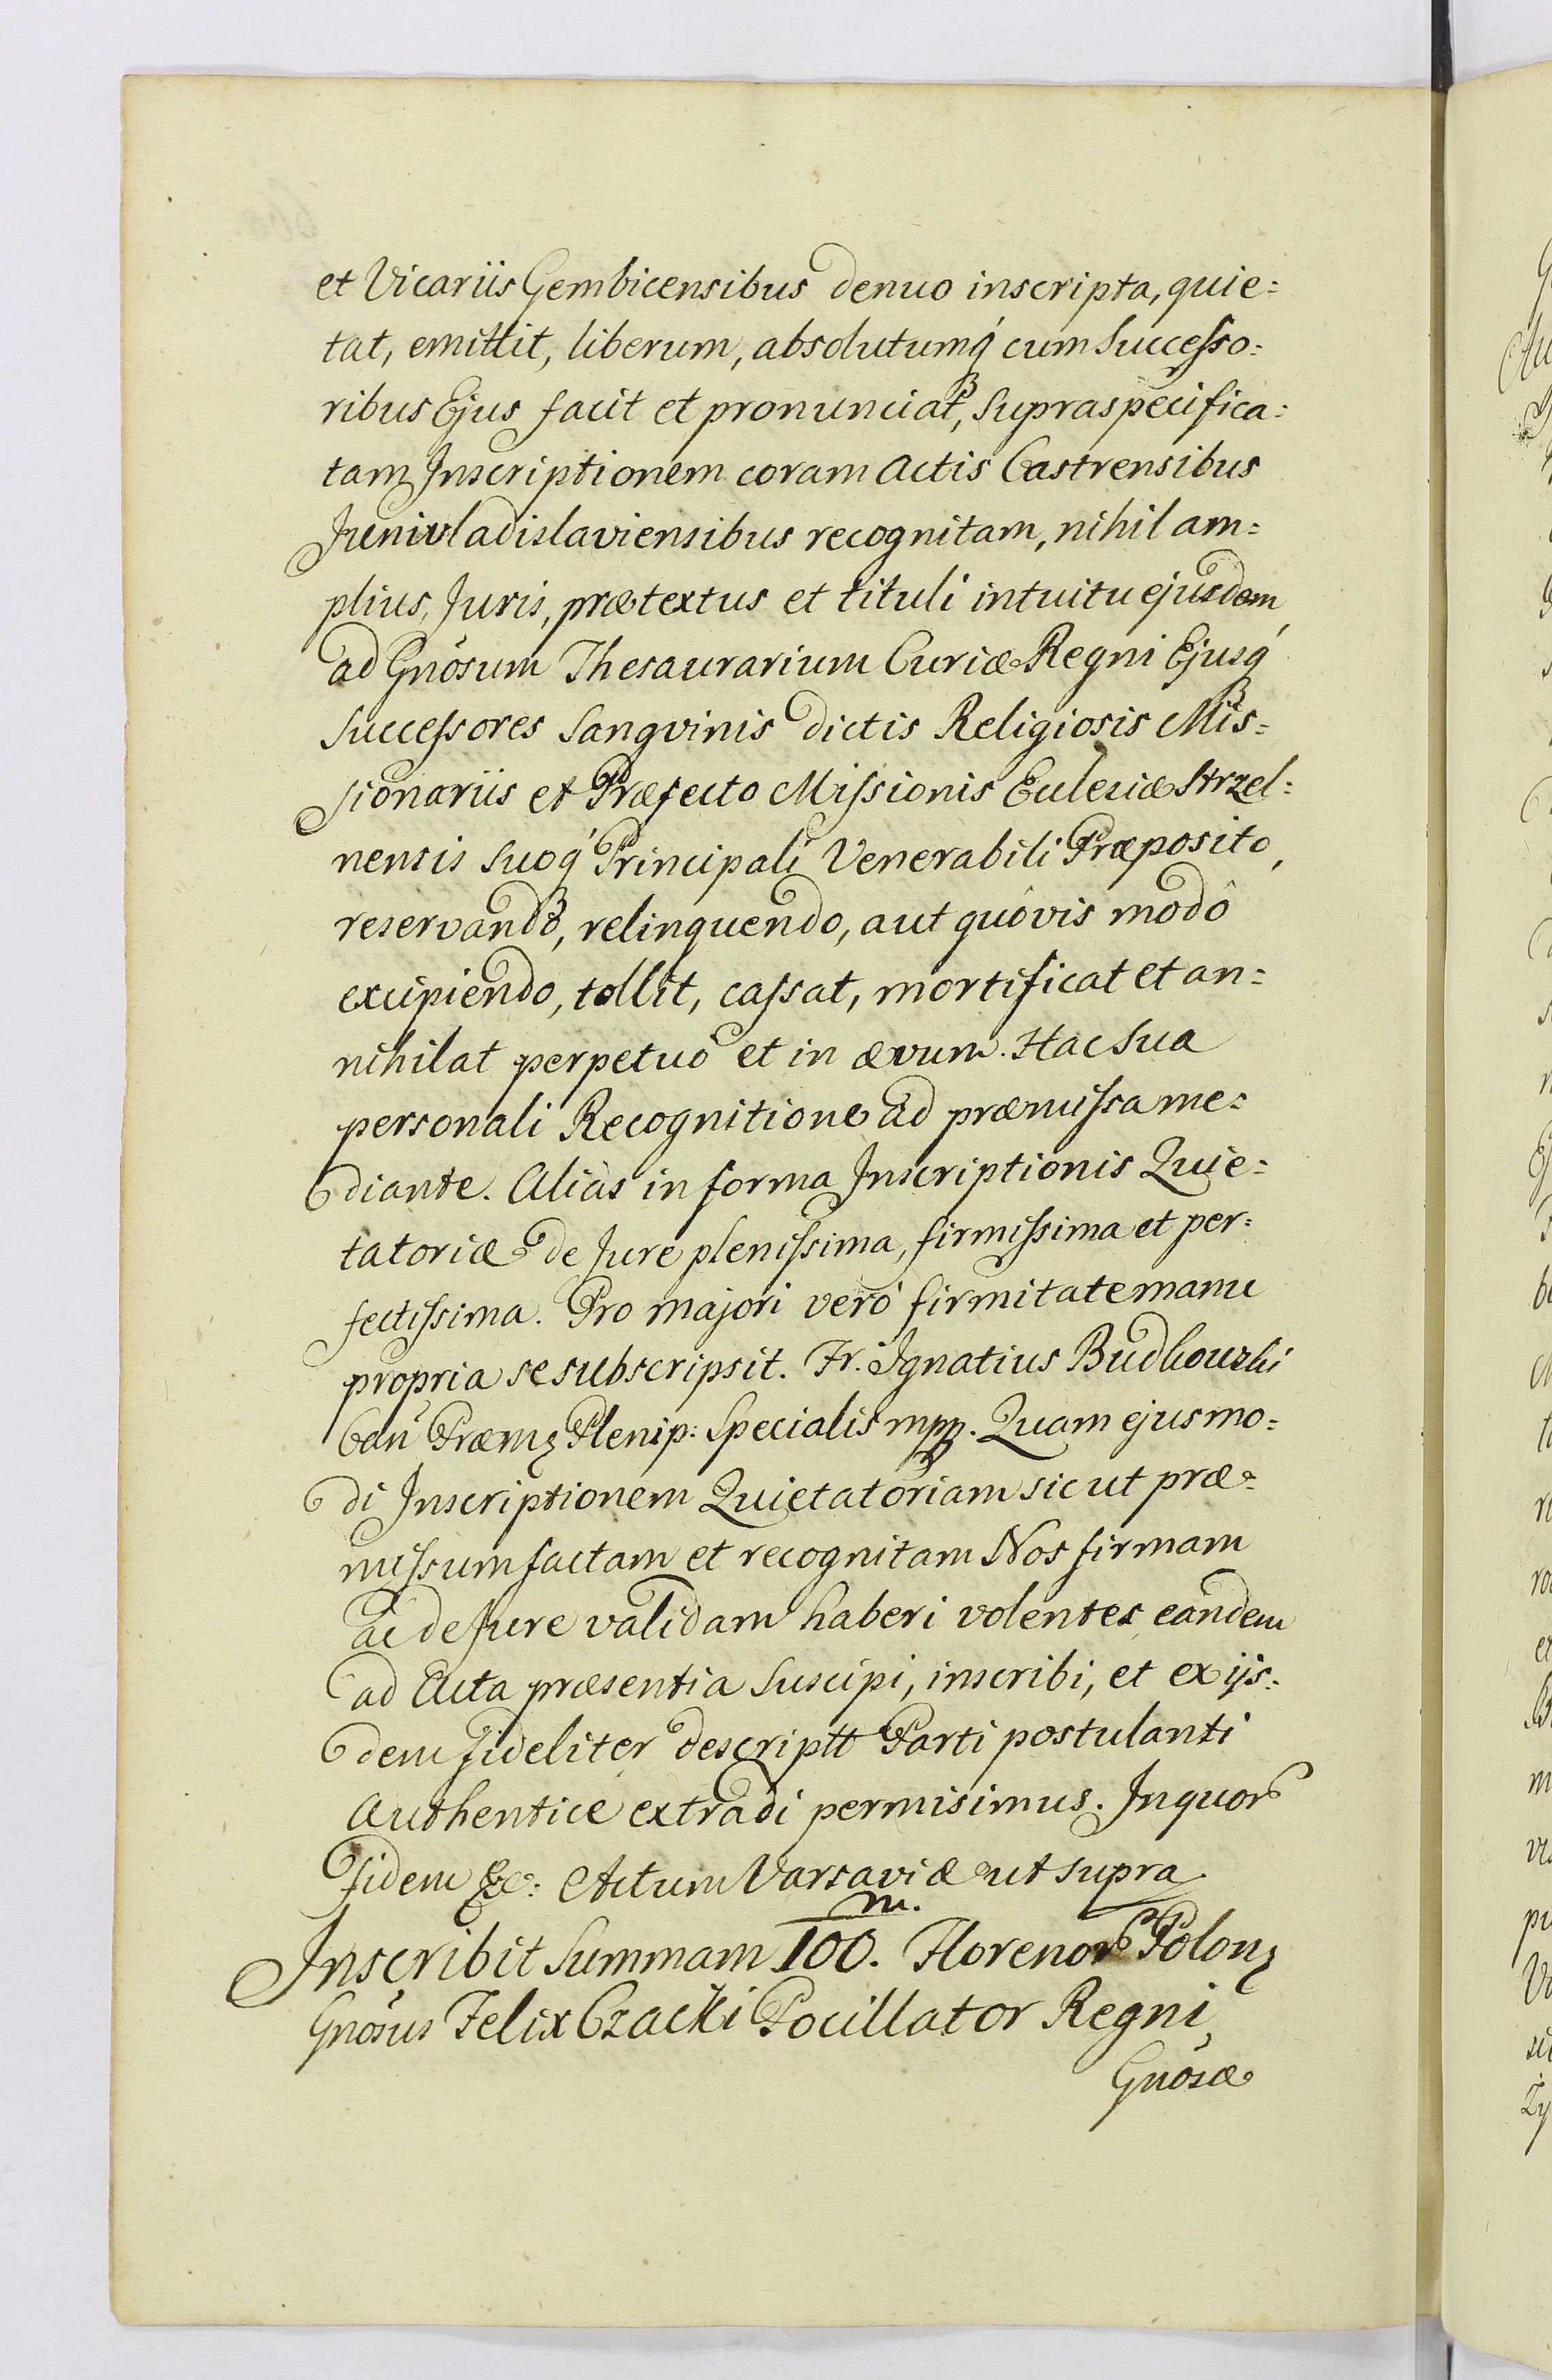 et Vicariis Gembicensibus denuo inscripta, quie=
tat, emittit, liberum, absolutumq́3 cum Successo=
ribus Ejus facit et pronunciat, supraspecifica=
tam Inscriptionem coram Actis Castrensibus
Junivladislaviensibus recognitam, nihil am=
plius, Juris, prætextus et tituli intuitu ejusdem,
ad Gnõsum Thesaurarium Curiæ Regni Ejusq́3
Successores Sangvinis dictis Religiosis Mis=
sionariis et Præfecto Missionis Eccleciæ Strzel=
nensis suoq́3 Principali Venerabili Præposito,
reservando, relinquendo, aut quôvis modô
excipiendo, tollit, cassat, mortificat et an=
nihilat perpetuò et in ævum. Hac Sua
personali Recognitione ad præmissa me=
diante. Aliàs in forma Inscriptionis Quie=
tatoriæ de Jure plenissima, firmissima et per=
fectissima. Pro majori verò firmitate manu
propria se subscripsit. Fr. Ignatius Budkouzki
Can̄ Præmꝫ Plenip: Specialis mpp. Quam ejusmo=
di Inscriptionem Quietatoriam sicut præ=
missum factam et recognitam Nos firmam
ac de Jure validam haberi volentes eandem
ad Acta præsentia suscipi, inscribi, et ex ijs=
dem fideliter descriptt Parti postulanti
Authentice extradi permisimus. In quor
fidem &c: Actum Varsaviæ ut supra.
Inscribit Summam 100. m. Florenor Polonꝫ
Gnõsus Felix Czacki Pocillator Regni,
Gnõsæ